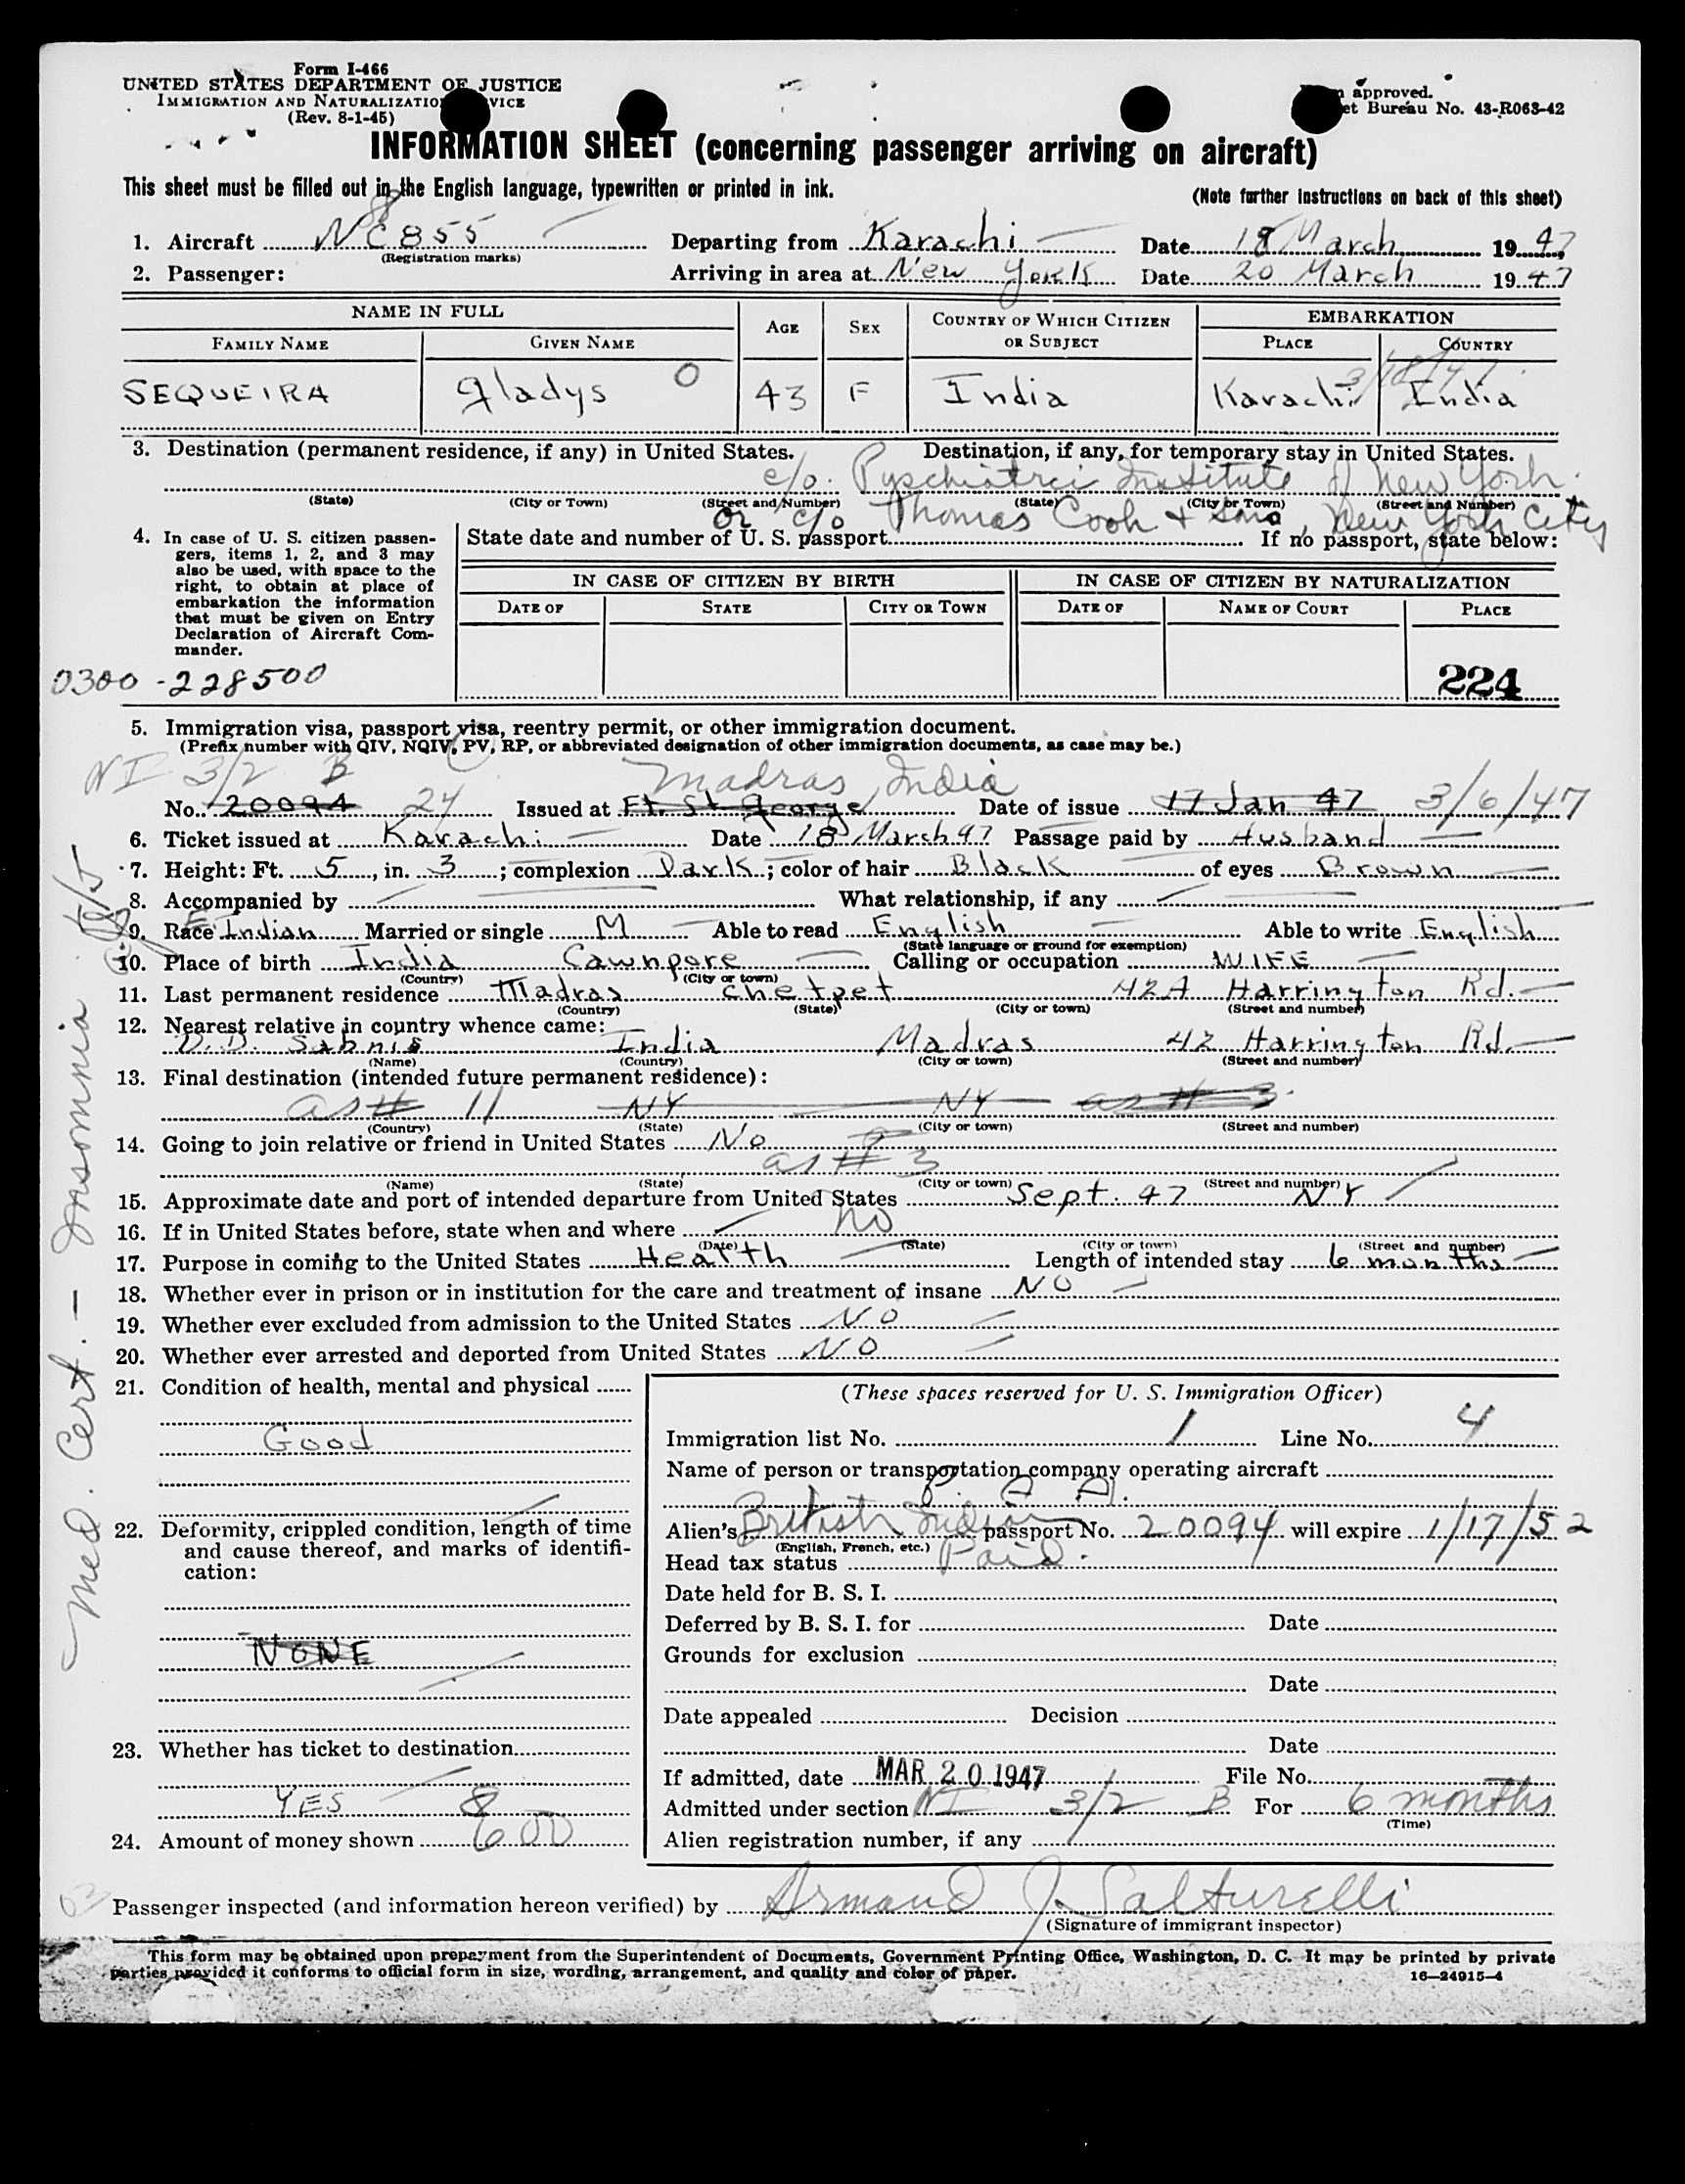 Form I-466
UNITED STATES DEPARTMENT OF JUSTICE
IMMIGRATION AND NATURALIZATION SERVICE
(Rev. 8-1-45)
approved.
et Bureau No. 43-R063-42
INFORMATION SHEET (concerning passenger arriving on aircraft)
This sheet must be filled out in the English language, typewritten or printed in ink.
(Note further instructions on back of this sheet)
1. Aircraft NC 855 Departing from Karachi Date 18 March 1947
(Registration marks)
2. Passenger: Arriving in area at New York Date 20 March 1947
NAME IN FULL AGE SEX COUNTRY OF WHICH CITIZEN OR SUBJECT EMBARKATION
FAMILY NAME GIVEN NAME PLACE COUNTRY
3/18/47
SEQUEIRA Gladys O 43 F India Karachi India
3. Destination (permanent residence, if any) in United States. Destination, if any, for temporary stay in United States.
c/o. Pyschiatrci Institute of New York.
(State) (City or Town) (Street and Number) (State) (City or Town) (Street and Number)
or c/o Thomas Cook & Sons, New York City
4. In case of U. S. citizen passengers, items 1, 2, and 3 may also be used, with space to the right, to obtain at place of embarkation the information that must be given on Entry Declaration of Aircraft Commander.
State date and number of U. S. passport If no passport, state below:
IN CASE OF CITIZEN BY BIRTH IN CASE OF CITIZEN BY NATURALIZATION
DATE OF STATE CITY OR TOWN DATE OF NAME OF COURT PLACE
0300 -228500
224
5. Immigration visa, passport visa, reentry permit, or other immigration document.
(Prefix number with QIV, NQIV, PV, RP, or abbreviated designation of other immigration documents, as case may be.)
NI 3/2 B Madras, India
No. 20094 24 Issued at Ft. St. George Date of issue 17 Jan 47 3/6/47
6. Ticket issued at Karachi Date 18 March 47 Passage paid by Husband
7. Height: Ft. 5, in. 3; complexion Dark; color of hair Black of eyes Brown
8. Accompanied by What relationship, if any
9. Race E Indian Married or single M Able to read English Able to write English
(State language or ground for exemption)
10. Place of birth India Cawnpore Calling or occupation WIFE
(Country) (City or town)
11. Last permanent residence Madras Chetpet 42A Harrington Rd.
(Country) (State) (City or town) (Street and number)
12. Nearest relative in country whence came:
D.D. Sabnis India Madras 42 Harrington Rd.
(Name) (Country) (City or town) (Street and number)
13. Final destination (intended future permanent residence):
as # 11 NY NY as # 3.
(Country) (State) (City or town) (Street and number)
14. Going to join relative or friend in United States No
as # 3
(Name) (State) (City or town) (Street and number)
15. Approximate date and port of intended departure from United States Sept. 47 NY
16. If in United States before, state when and where no
(Date) (State) (City or town) (Street and number)
17. Purpose in coming to the United States Health Length of intended stay 6 months
18. Whether ever in prison or in institution for the care and treatment of insane NO
19. Whether ever excluded from admission to the United States NO
20. Whether ever arrested and deported from United States NO
Med. Cert. — Insomnia
21. Condition of health, mental and physical
Good
22. Deformity, crippled condition, length of time and cause thereof, and marks of identification:
NONE
23. Whether has ticket to destination
YES
24. Amount of money shown $600
(These spaces reserved for U. S. Immigration Officer)
Immigration list No. 1 Line No. 4
Name of person or transportation company operating aircraft
P. A A.
Alien's British Indian passport No. 20094 will expire 1/17/52
(English, French, etc.)
Head tax status Paid.
Date held for B. S. I.
Deferred by B. S. I. for Date
Grounds for exclusion
Date
Date appealed Decision
Date
If admitted, date MAR 20 1947 File No.
Admitted under section NI 3/2 B For 6 months
(Time)
Alien registration number, if any
Passenger inspected (and information hereon verified) by Armand J. Salturelli
(Signature of immigrant inspector)
This form may be obtained upon prepayment from the Superintendent of Documents, Government Printing Office, Washington, D. C. It may be printed by private
parties provided it conforms to official form in size, wording, arrangement, and quality and color of paper.
16—24915-4